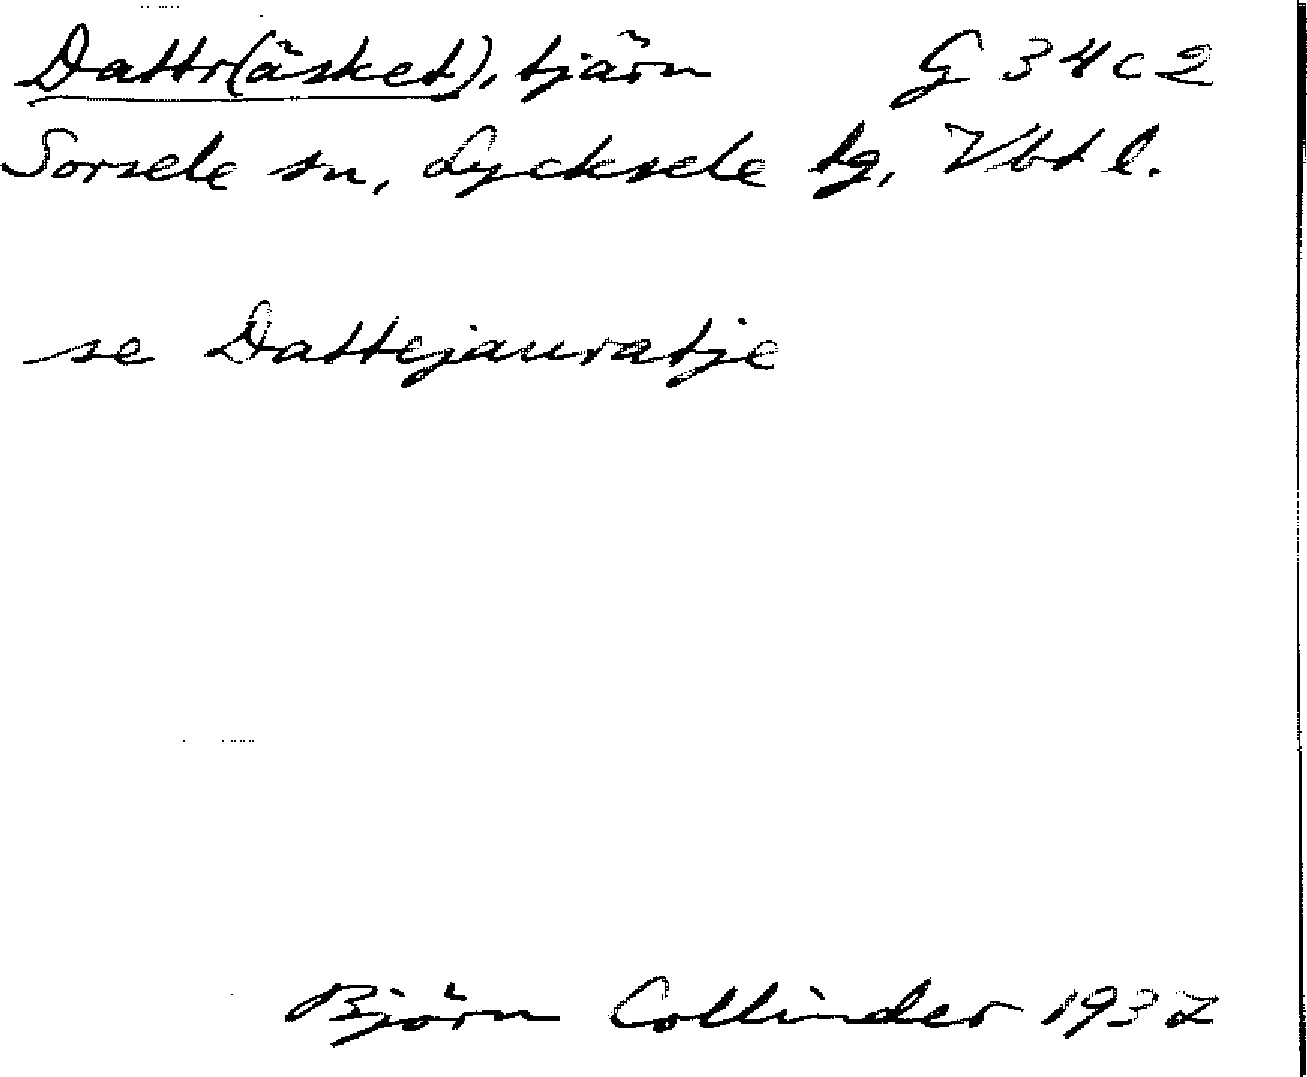 Dattr(äsket), tjärn G 34 c 2
Sorsele sn, Lycksele tg, Vbt l.
se Dattejauratje
Björn Collinder 1937